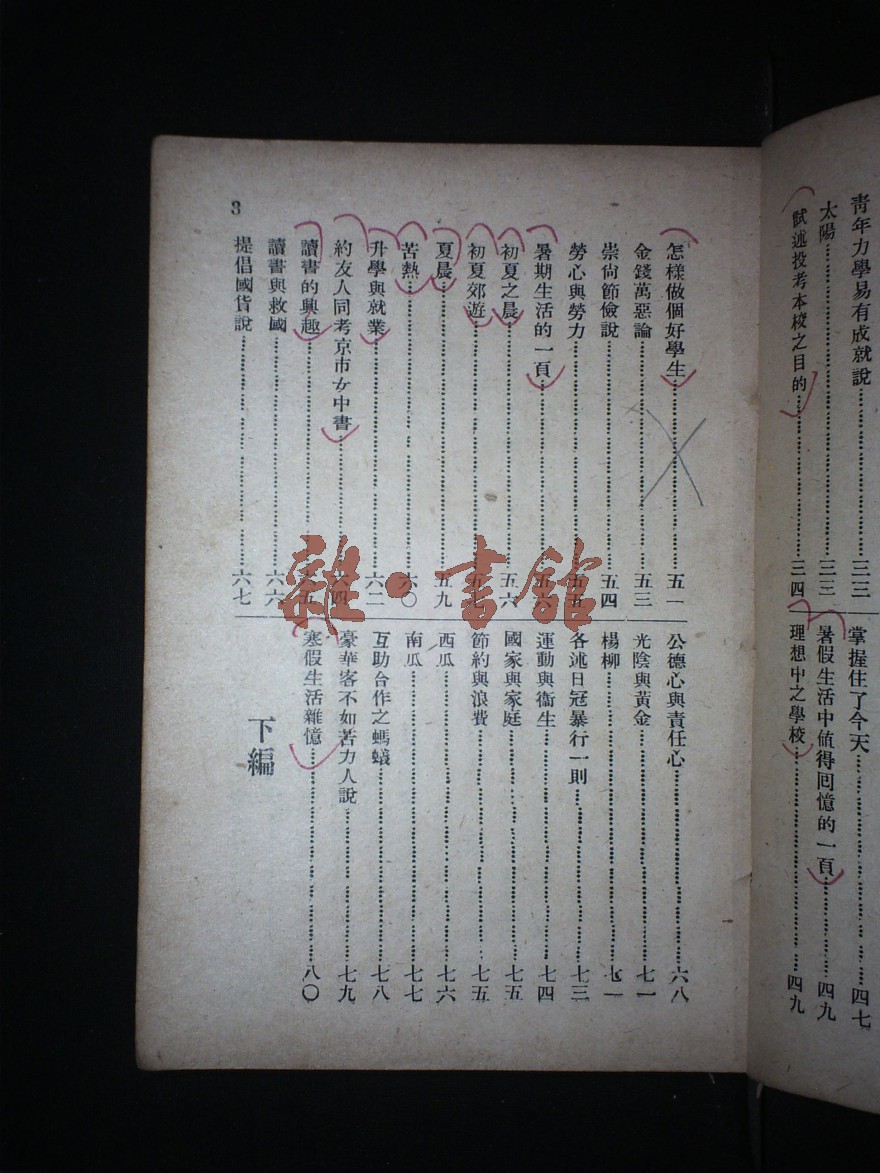 青年力學易有成就說……三三
太陽……三三
試述投考本校之目的……三四
掌握住了今天……四七
暑假生活中値得囘憶的一頁……四九
理想中之學校……四九
怎樣做個好學生……五一
金錢萬惡論……五三
崇尙節儉說……五四
勞心與勞力……五五
暑期生活的一頁……五六
初夏之晨……五六
初夏郊遊……五七
夏晨……五九
苦熱……六〇
升學與就業……六二
約友人同考京市女中書……六四
讀書的興趣……六五
讀書與救國……六六
提倡國貨說……六七
公德心與責任心……六八
光陰與黃金……七一
楊柳……七一
各述日冦暴行一則……七三
運動與衞生……七四
國家與家庭……七五
節約與浪費……七五
西瓜……七六
南瓜……七七
互助合作之螞蟻……七八
豪華客不如苦力人說……七九
寒假生活雜憶……八〇
下編
3
雜·書館